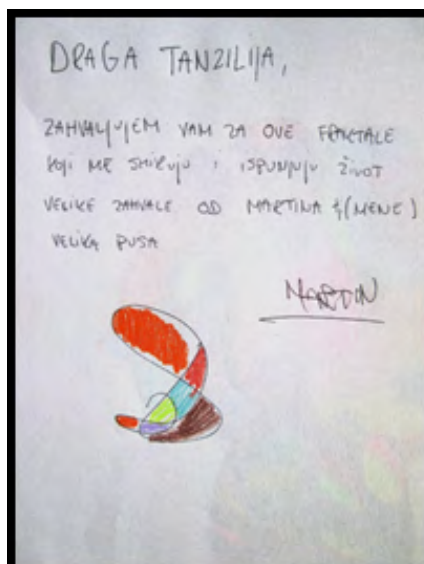 DRAGA TANZILIJA,
ZAHVALJUJEM VAM ZA OVE FRAKTALE
KOJI ME SMIRUJU I ISPUNJUJU ŽIVOT
VELIKE ZAHVALE OD MARTINA (MENE)
VELIKA PUSA
MARTIN